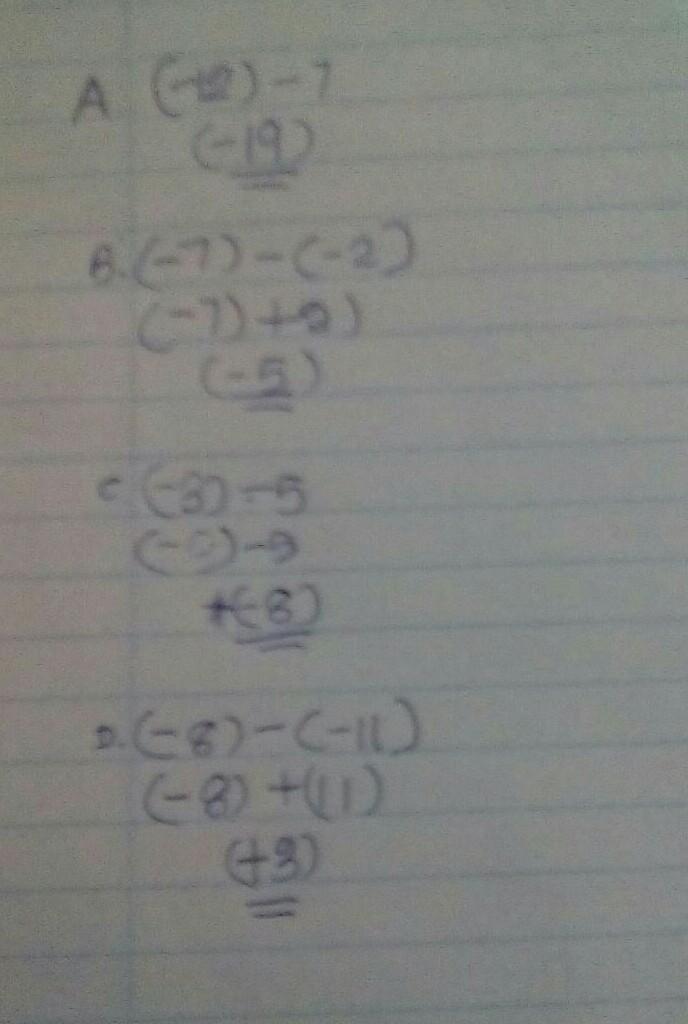 A (-12) - 7
(-19)
B. (-7) - (-2)
(-7) + 2)
(-5)
C (-3) - 5
+(-8)
D. (-8) - (-11)
(-8) + (11)
(+3)